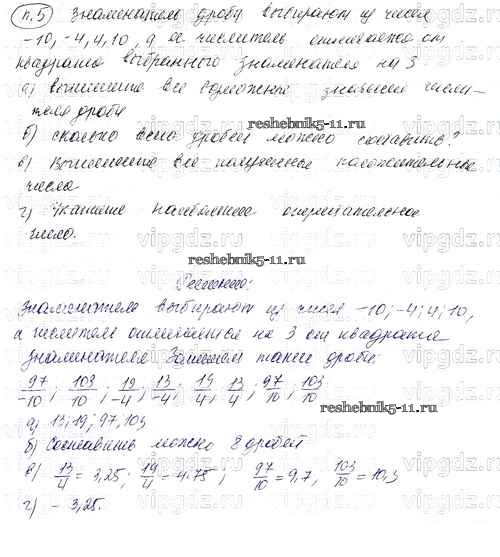 п.5 Знаменатель дроби выбирают из чисел
-10, -4, 4, 10, а ее числитель отличается от
квадрата выбранного знаменателя на 3
а) вычислите все возможные значения числи-
теля дроби
б) сколько всего дробей можно составить?
reshebnik5-11.ru
в) Вычислите все полученные положительные
числа
г) Укажите наибольшее отрицательное
число.
reshebnik5-11.ru
Решение:
Знаменатель выбирают из чисел -10; -4; 4; 10,
а числитель отличается на 3 от квадрата
знаменателя. Запишем такие дроби:
97/-10; 103/-10; 19/-4; 13/-4; 19/4; 13/4; 97/10; 103/10
reshebnik5-11.ru
а) 13; 19; 97; 103
б) Составить можно 8 дробей
в) 13/4 = 3,25; 19/4 = 4.75; 97/10 = 9,7, 103/10 = 10,3
г) - 3,25.
vipgdz.ru